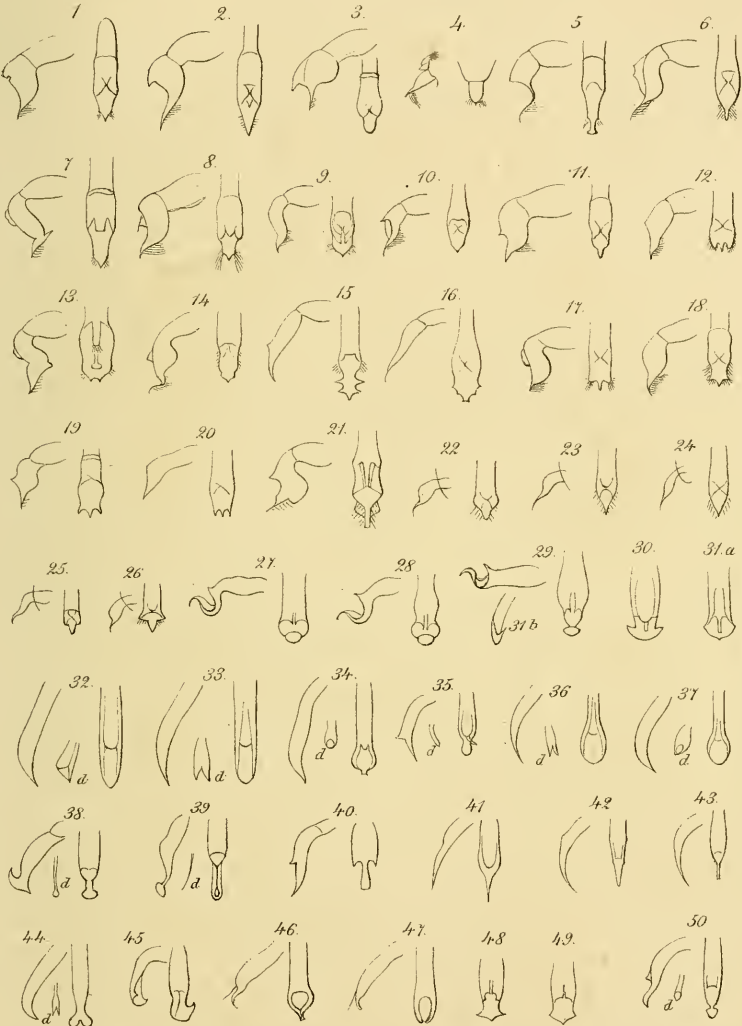 1 2. 3. 4. 5 6.
7 8. 9. 10. 11. 12.
13. 14 15 16. 17. 18.
19 20 21. 22 23. 24.
25. 26 27. 28 29. 30. 31.a
31 b
32. 33. 34. 35. 36 37
d d d d d d
38. 39 40. 41 42 43.
d d
44. 45 46. 47. 48 49. 50
d d